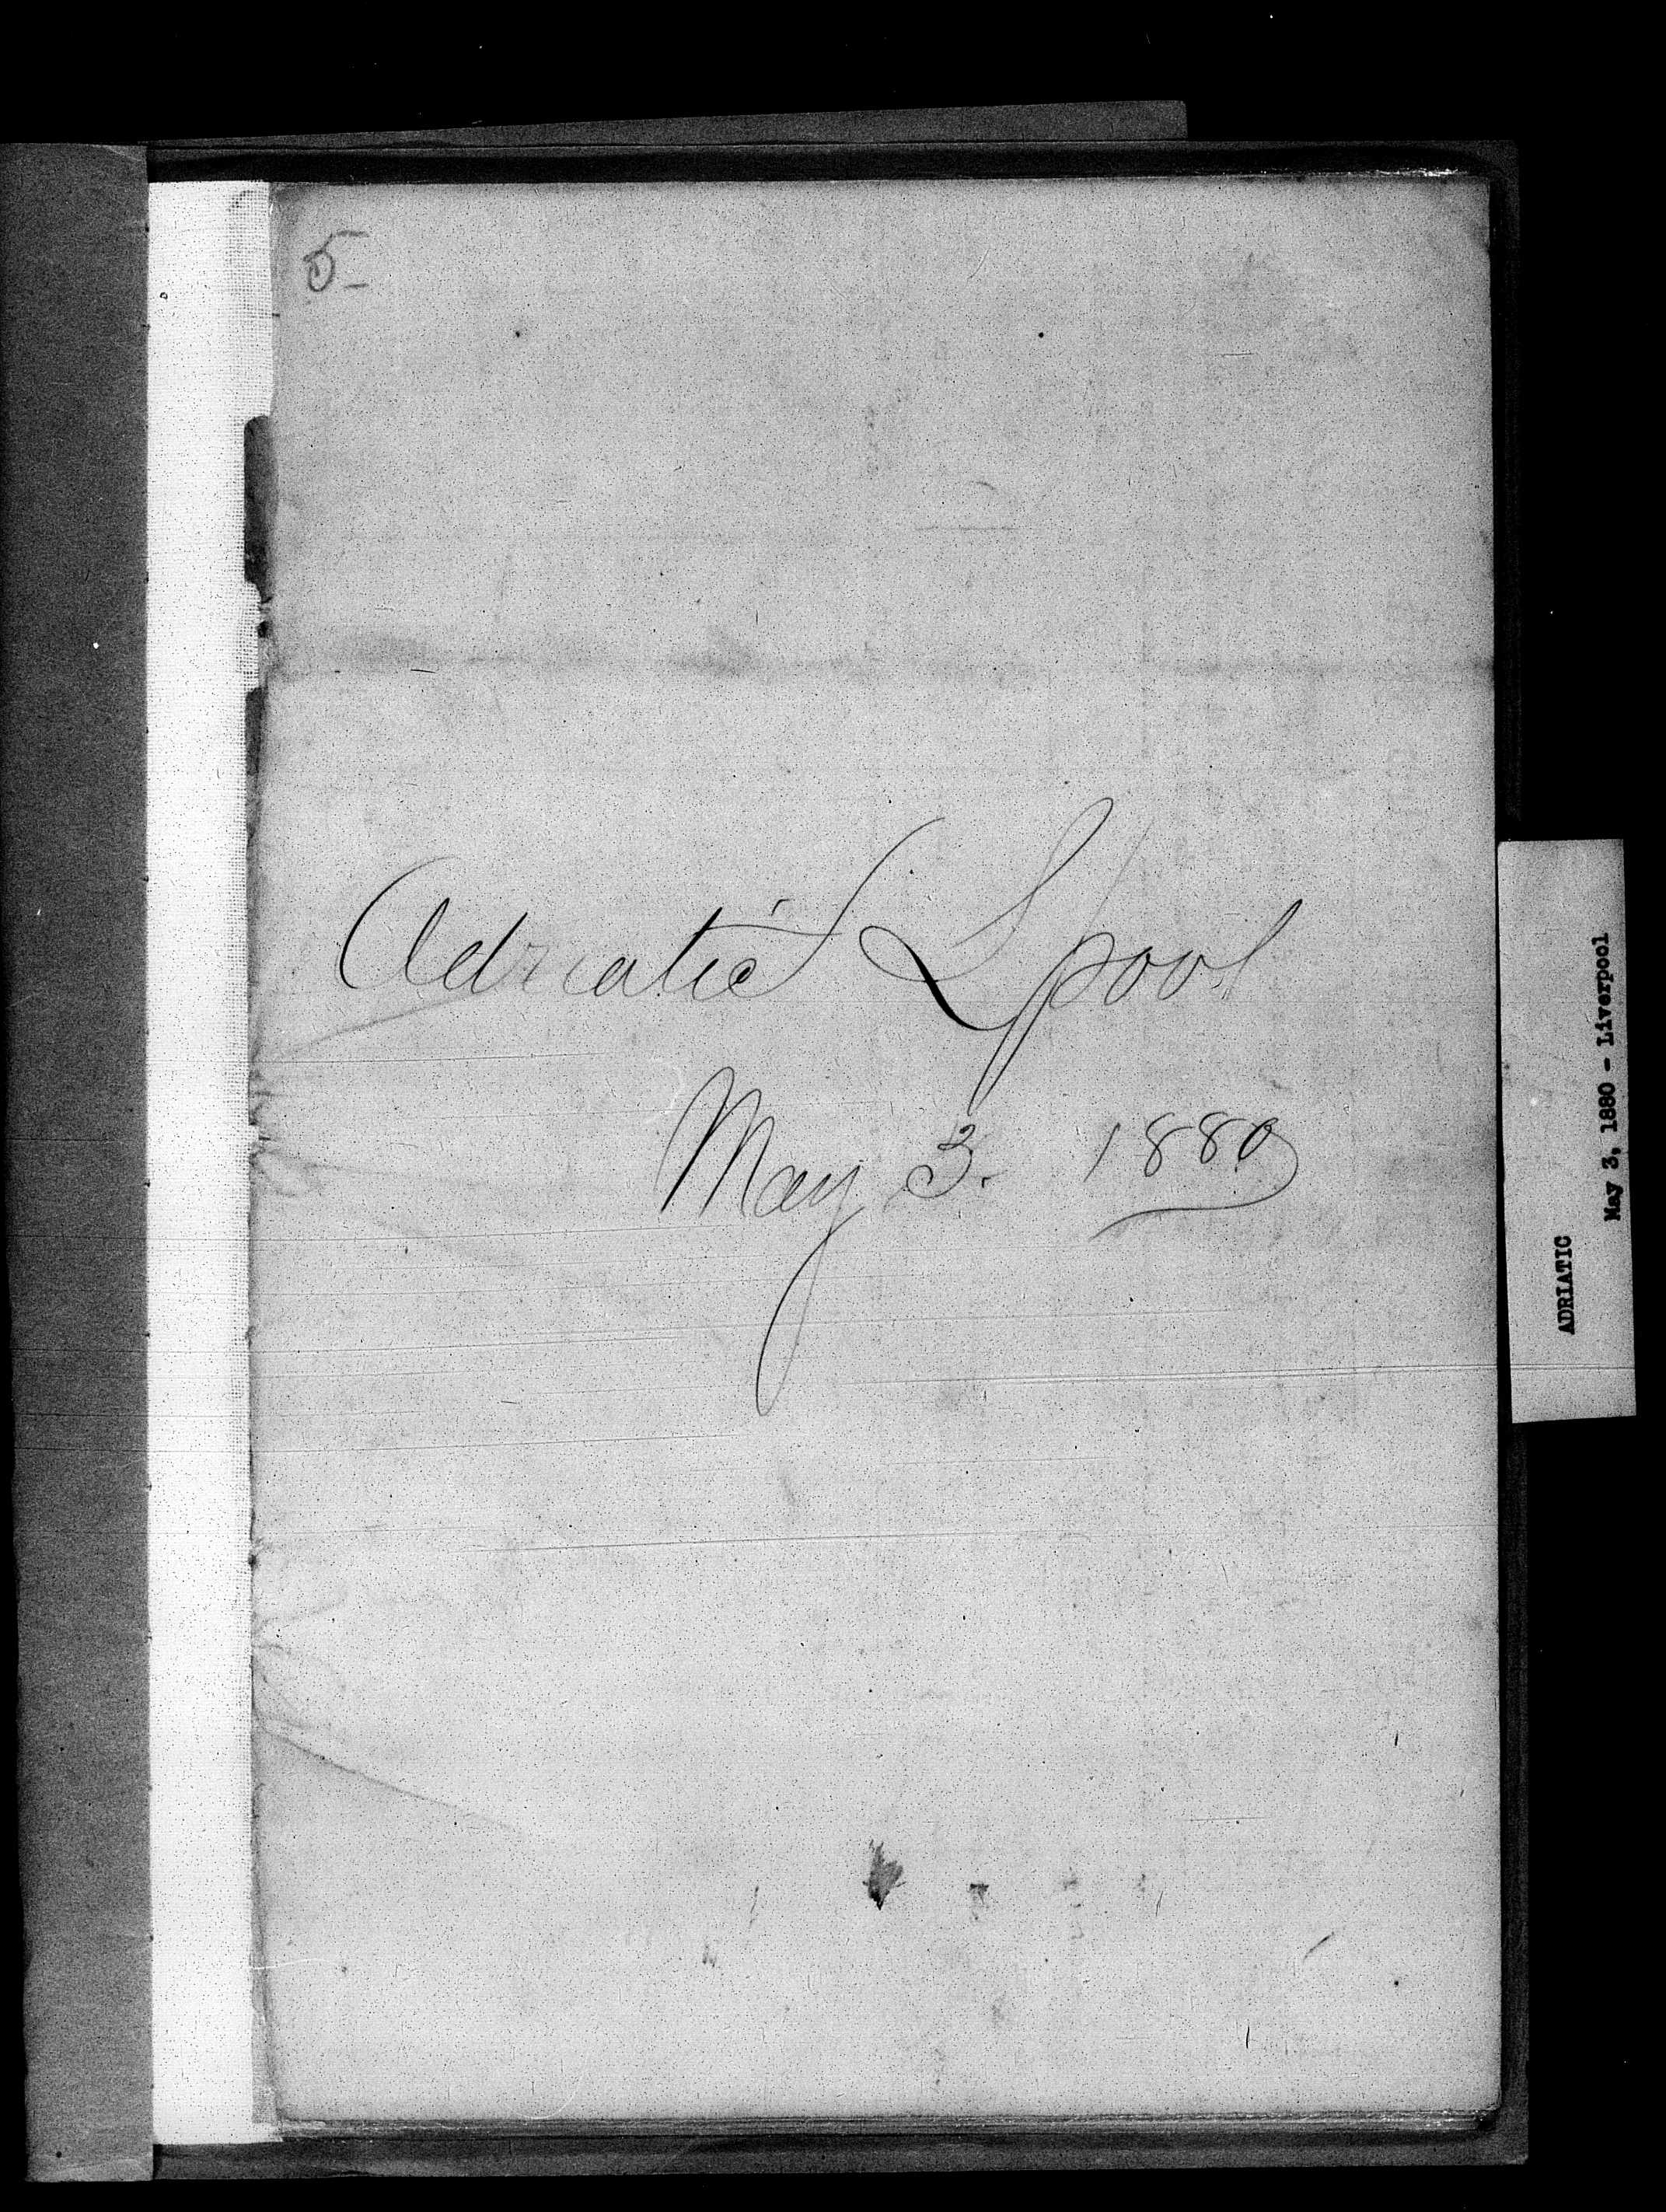 5-
Adriatic L'pool
May 3. 1880
ADRIATIC
May 3, 1880 - Liverpool